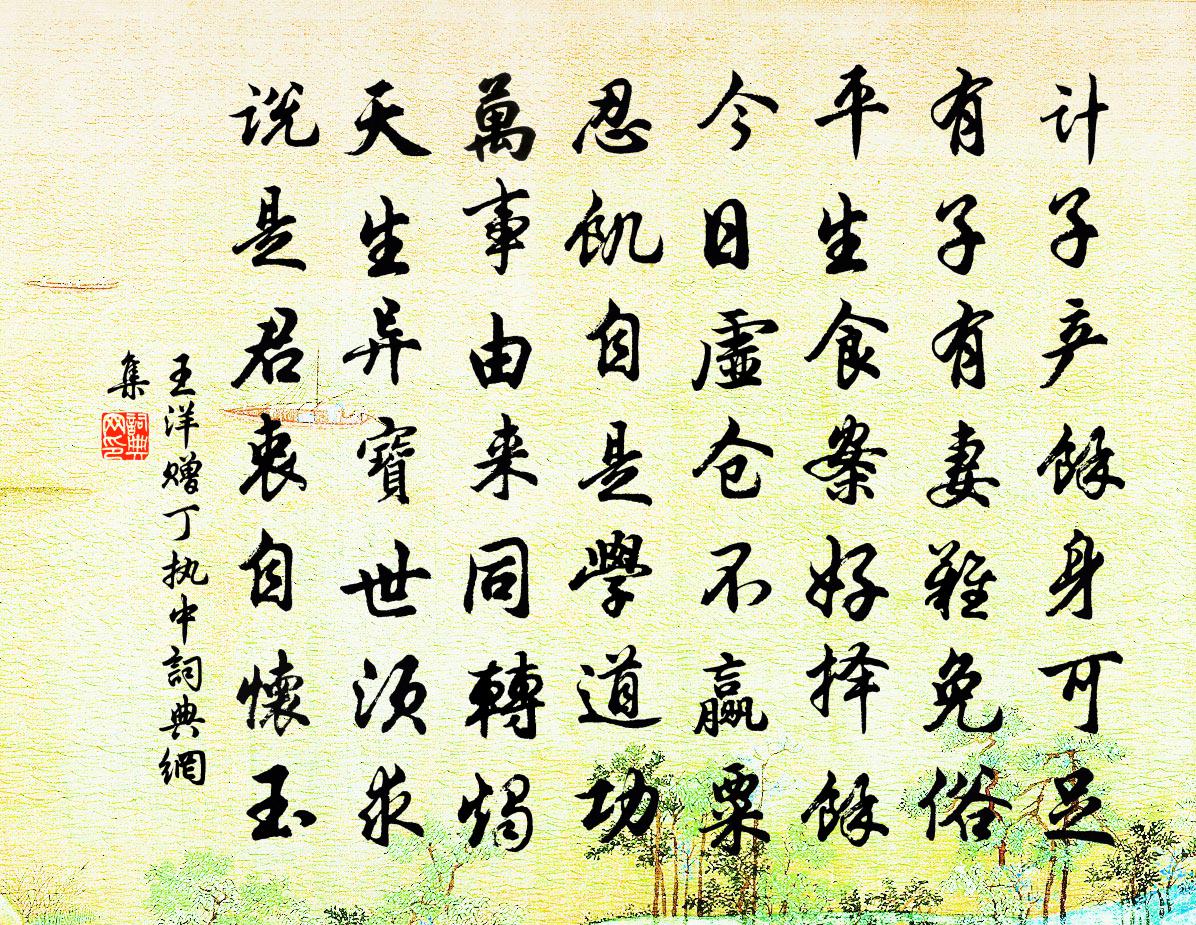 计子产馀身可足
有子有妻难免俗
平生食案好择馀
今日虚仓不赢粟
忍飢自是學道功
萬事由来同轉燭
天生异寶世须求
说是君衷自懷玉
王洋赠丁执中詞典網
集
詞典
网印